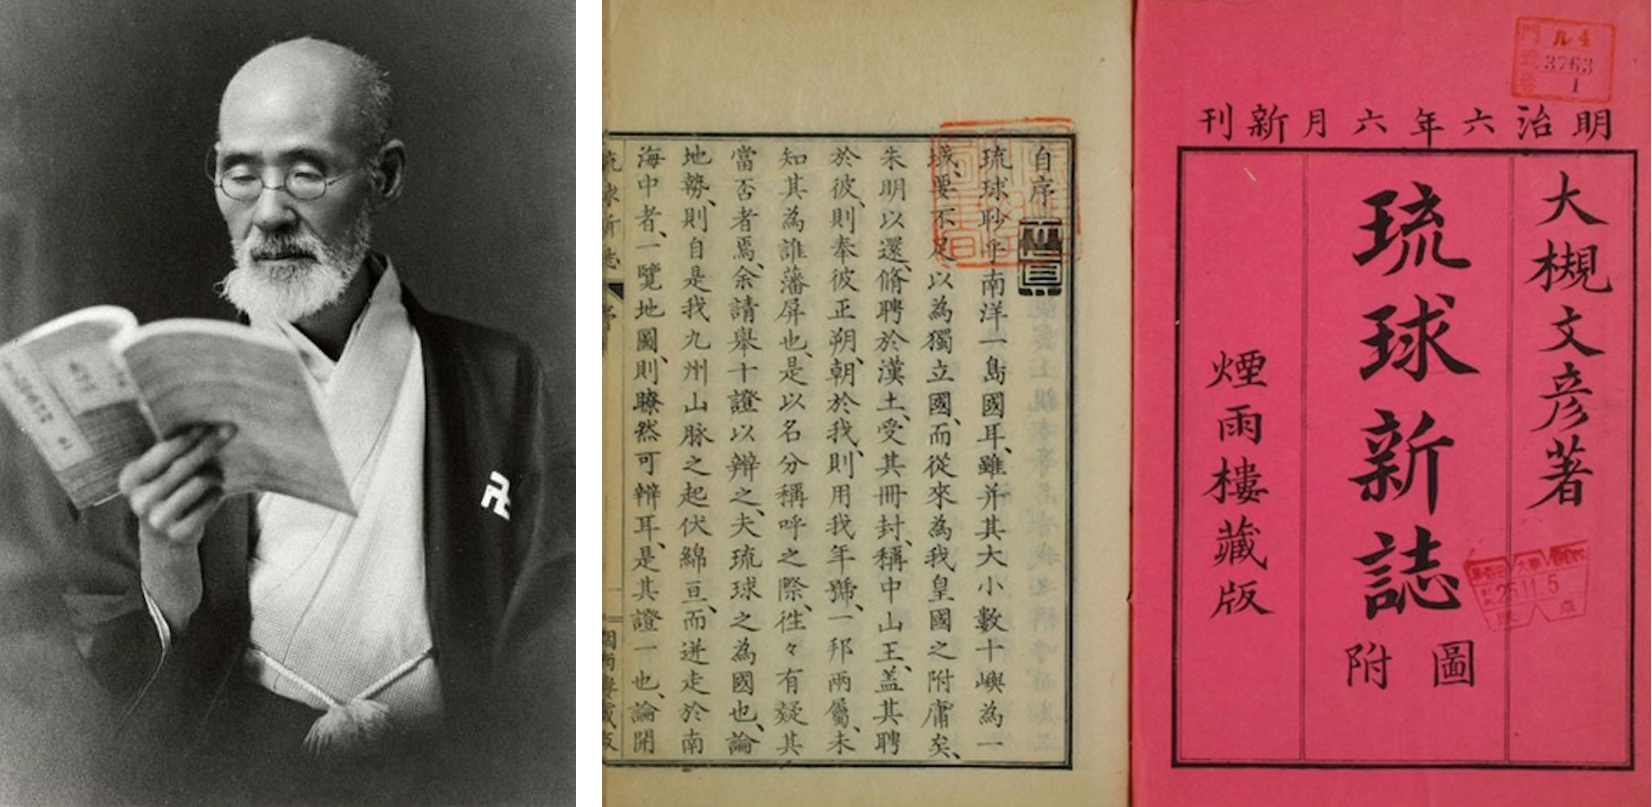 明治六年六月新刊
大槻文彦著
琉球新誌
圖附
煙雨樓藏版
門 ル4
3763
1
25 11 5
自序
琉球眇乎南洋一島國耳、雖并其大小數十嶼為一
域、要不足以為獨立國、而從來為我皇國之附庸矣、
朱明以還、脩聘於漢土、受其冊封、稱中山王、盖其聘
於彼、則奉彼正朔、朝於我、則用我年號、一邦兩屬、未
知其為誰藩屏也、是以名分稱呼之際、徃々有疑其
當否者焉、余請舉十證以辯之、夫琉球之為國也、論
地勢、則自是我九州山脉之起伏綿亘、而迸走於南
海中者、一覽地圖、則瞭然可辯耳、是其證一也、論開